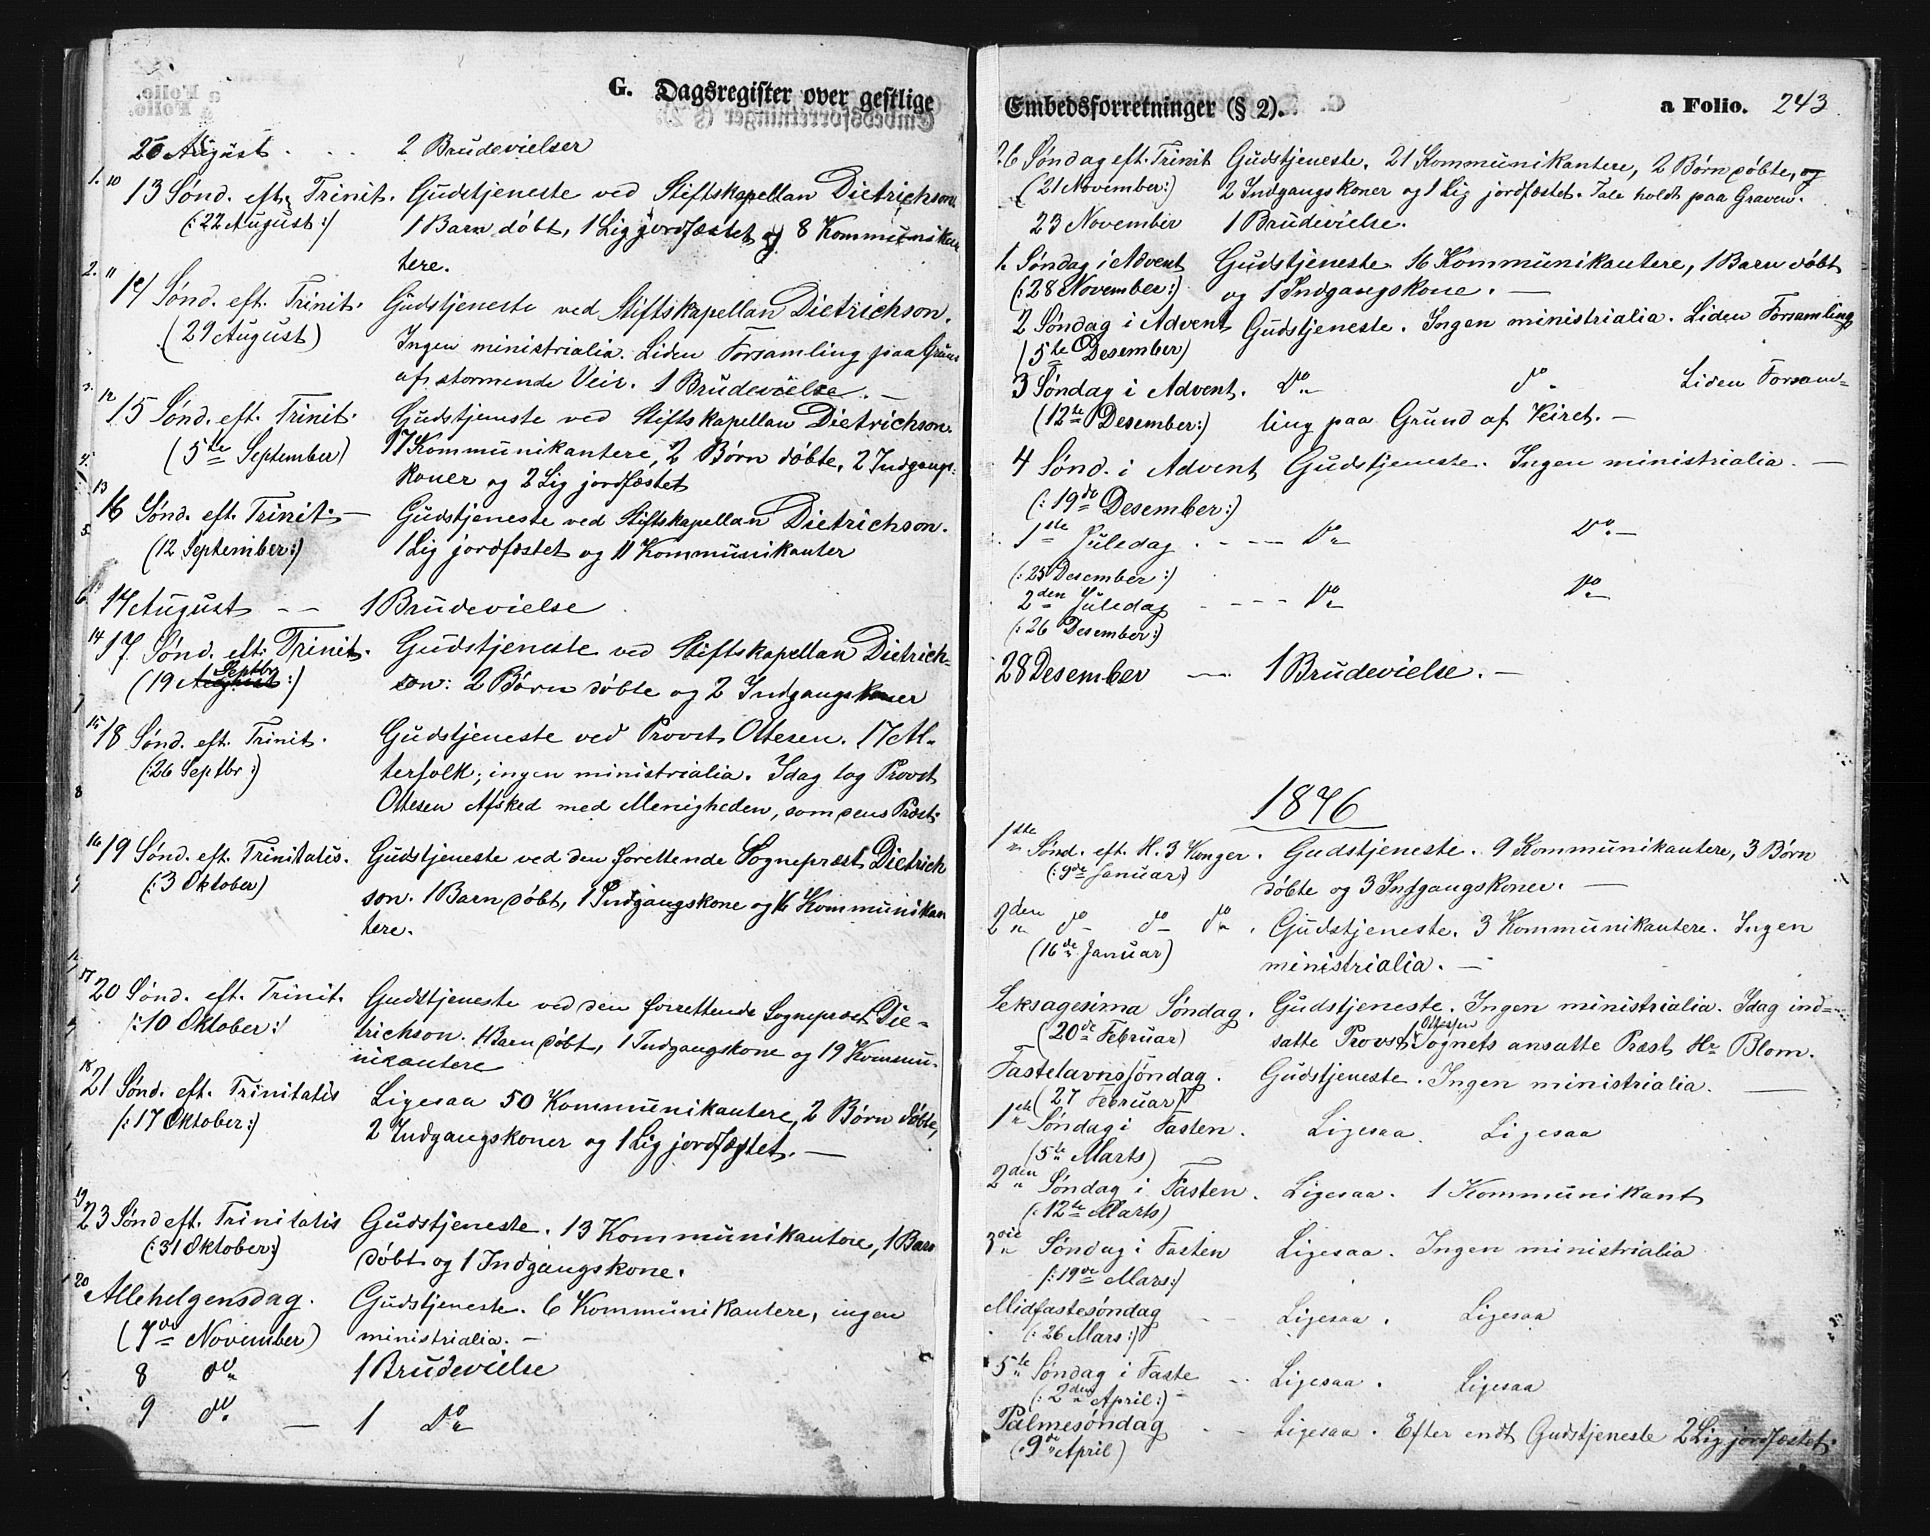 G. Dagsregister over gestlige
26 August . . . 2 Brudevielser
1. 10 13 Sønd. eft. Trinit. Gudstjeneste ved Stiftskapellan Dietrichson
(: 22 August :) 1 Barn døbt, 1 Lig jordfæstet og 8 Kommunikan
tere.
2. 11 14 Sønd. eft. Trinit. Gudstjeneste ved Stiftskapellan Dietrichson.
(29 August) Ingen ministrialia. Liden Forsamling paa Grund
af stormende Veir. 1 Brudevielse. —
3. 12 15 Sønd. eft. Trinit. Gudstjeneste ved Stiftskapellan Dietrichson.
(5te September) 17 Kommunikantere, 2 Børn døbte, 2 Indgangs:
4. koner og 2 Lig jordfæstet
13 16 Sønd. eft. Trinit. — Gudstjeneste ved Stiftskapellan Dietrichson.
5. (12 September :) 1 Lig jordfæstet og 11 Kommunikanter
6. 14 August — — 1 Brudevielse
14 17 Sønd. eft. Trinit. Gudstjeneste ved Stiftskapellan Dietrich-
Septbr
(19 August :) son: 2 Børn døbte og 2 Indgangskoner
7
15 18 Sønd. eft. Trinit. Gudstjeneste ved Provst Ottesen. 17 Al-
(: 26 Septbr :) terfolk; ingen ministrialia. Idag tog Provst
8 Ottesen Afsked med Menigheden, som dens Præst.
16 19 Sønd. eft. Trinitatis. Gudstjeneste ved den forettende Sognepræst Dietrich
(: 3 Oktober) son. 1 Barn døbt, 1 Indgangskone og 16 Kommunikan
tere.
17 20 Sønd. eft. Trinit. Gudstjeneste ved den forrettende Sognepræst Die-
/: 10 Oktober :/ trichson. 1 Barn døbt, 1 Indgangskone og 19 Kommu-
nikantere
18 21 Sønd. eft. Trinitatis Ligesaa 50 Kommunikantere, 2 Børn døbte,
/: 17 Oktober :) 2 Indgangskoner og 1 Lig jordfæstet. —
19 23 Sønd eft. Trinitatis Gudstjeneste. 13 Kommunikantere, 1 Barn
(: 31 Oktober :) døbt og 1 Indgangskone.
20 Allehelgensdag. Gudstjeneste. 6 Kommunikantere, ingen
(7de November) ministrialia. —
8 do 1 Brudevielse
9 do — 1 Do
Embedsforretninger (§ 2). a Folio. 243
26 Søndag eft. Trinit Gudstjeneste. 21 Kommunikantere, 2 Børn døbte, og
(21 November :) 2 Indgangskoner og 1 Lig jordfæstet. Tale holdt paa Graven.
23 November 1 Brudevielse.
1. Søndag i Advent Gudstjeneste 16 Kommunikantere, 1 Barn døbt
(: 28 November :) og 1 Indgangskone. —
2 Søndag i Advent Gudstjeneste. Ingen ministrialia. Liden Forsamling
(5te Desember)
3 Søndag i Advent. Do do Liden Forsam-
(12te Desember :) ling paa Grund af Veiret. —
4 Sønd. i Advent Gudstjeneste. Ingen ministrialia. —
(: 19de Desember :)
1ste Juledag . - — — Do Do. —
(: 25 Desember :)
2den Juledag - - - - Do Do
(: 26 Desember :)
28 Desember — 1 Brudevielse. —
1876
1ste Sønd. eft. H. 3 Konger. Gudstjeneste. 9 Kommunikantere, 3 Børn
(: 9de Januar) døbte og 3 Indgangskoner. —
2den do do do . Gudstjeneste. 3 Kommunikantere. Ingen
(16de Januar) ministrialia. —
Seksagesima Søndag. Gudstjeneste. Ingen ministrialia. Idag ind-
Ottesen
(20de Februar) satte Provst Sognets ansatte Præst Hr Blom.
Fastelavnssøndag. Gudstjeneste. Ingen ministrialia. —
(27 Februar)
1ste Søndag i Fasten. Ligesaa Ligesaa
(5te Marts)
2den Søndag i Fasten. Ligesaa. 1 Kommunikant
(: 12te Marts)
3die Søndag i Fasten Ligesaa. Ingen ministrialia
/: 19de Mars :)
Midfastesøndag - - Ligesaa. Ligesaa
(: 26 Mars :)
5te Søndag i Faste - - Ligesaa. Ligesaa
(: 2den April :)
Palmesøndag - - Ligesaa. Efter endt Gudstjeneste 2 Lig jordfæstet.
(: 9de April)